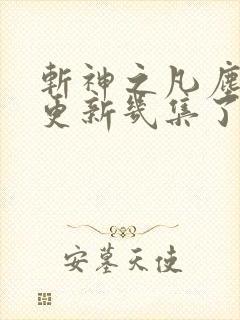 斬神之凡塵
更新幾集了
安墓天使